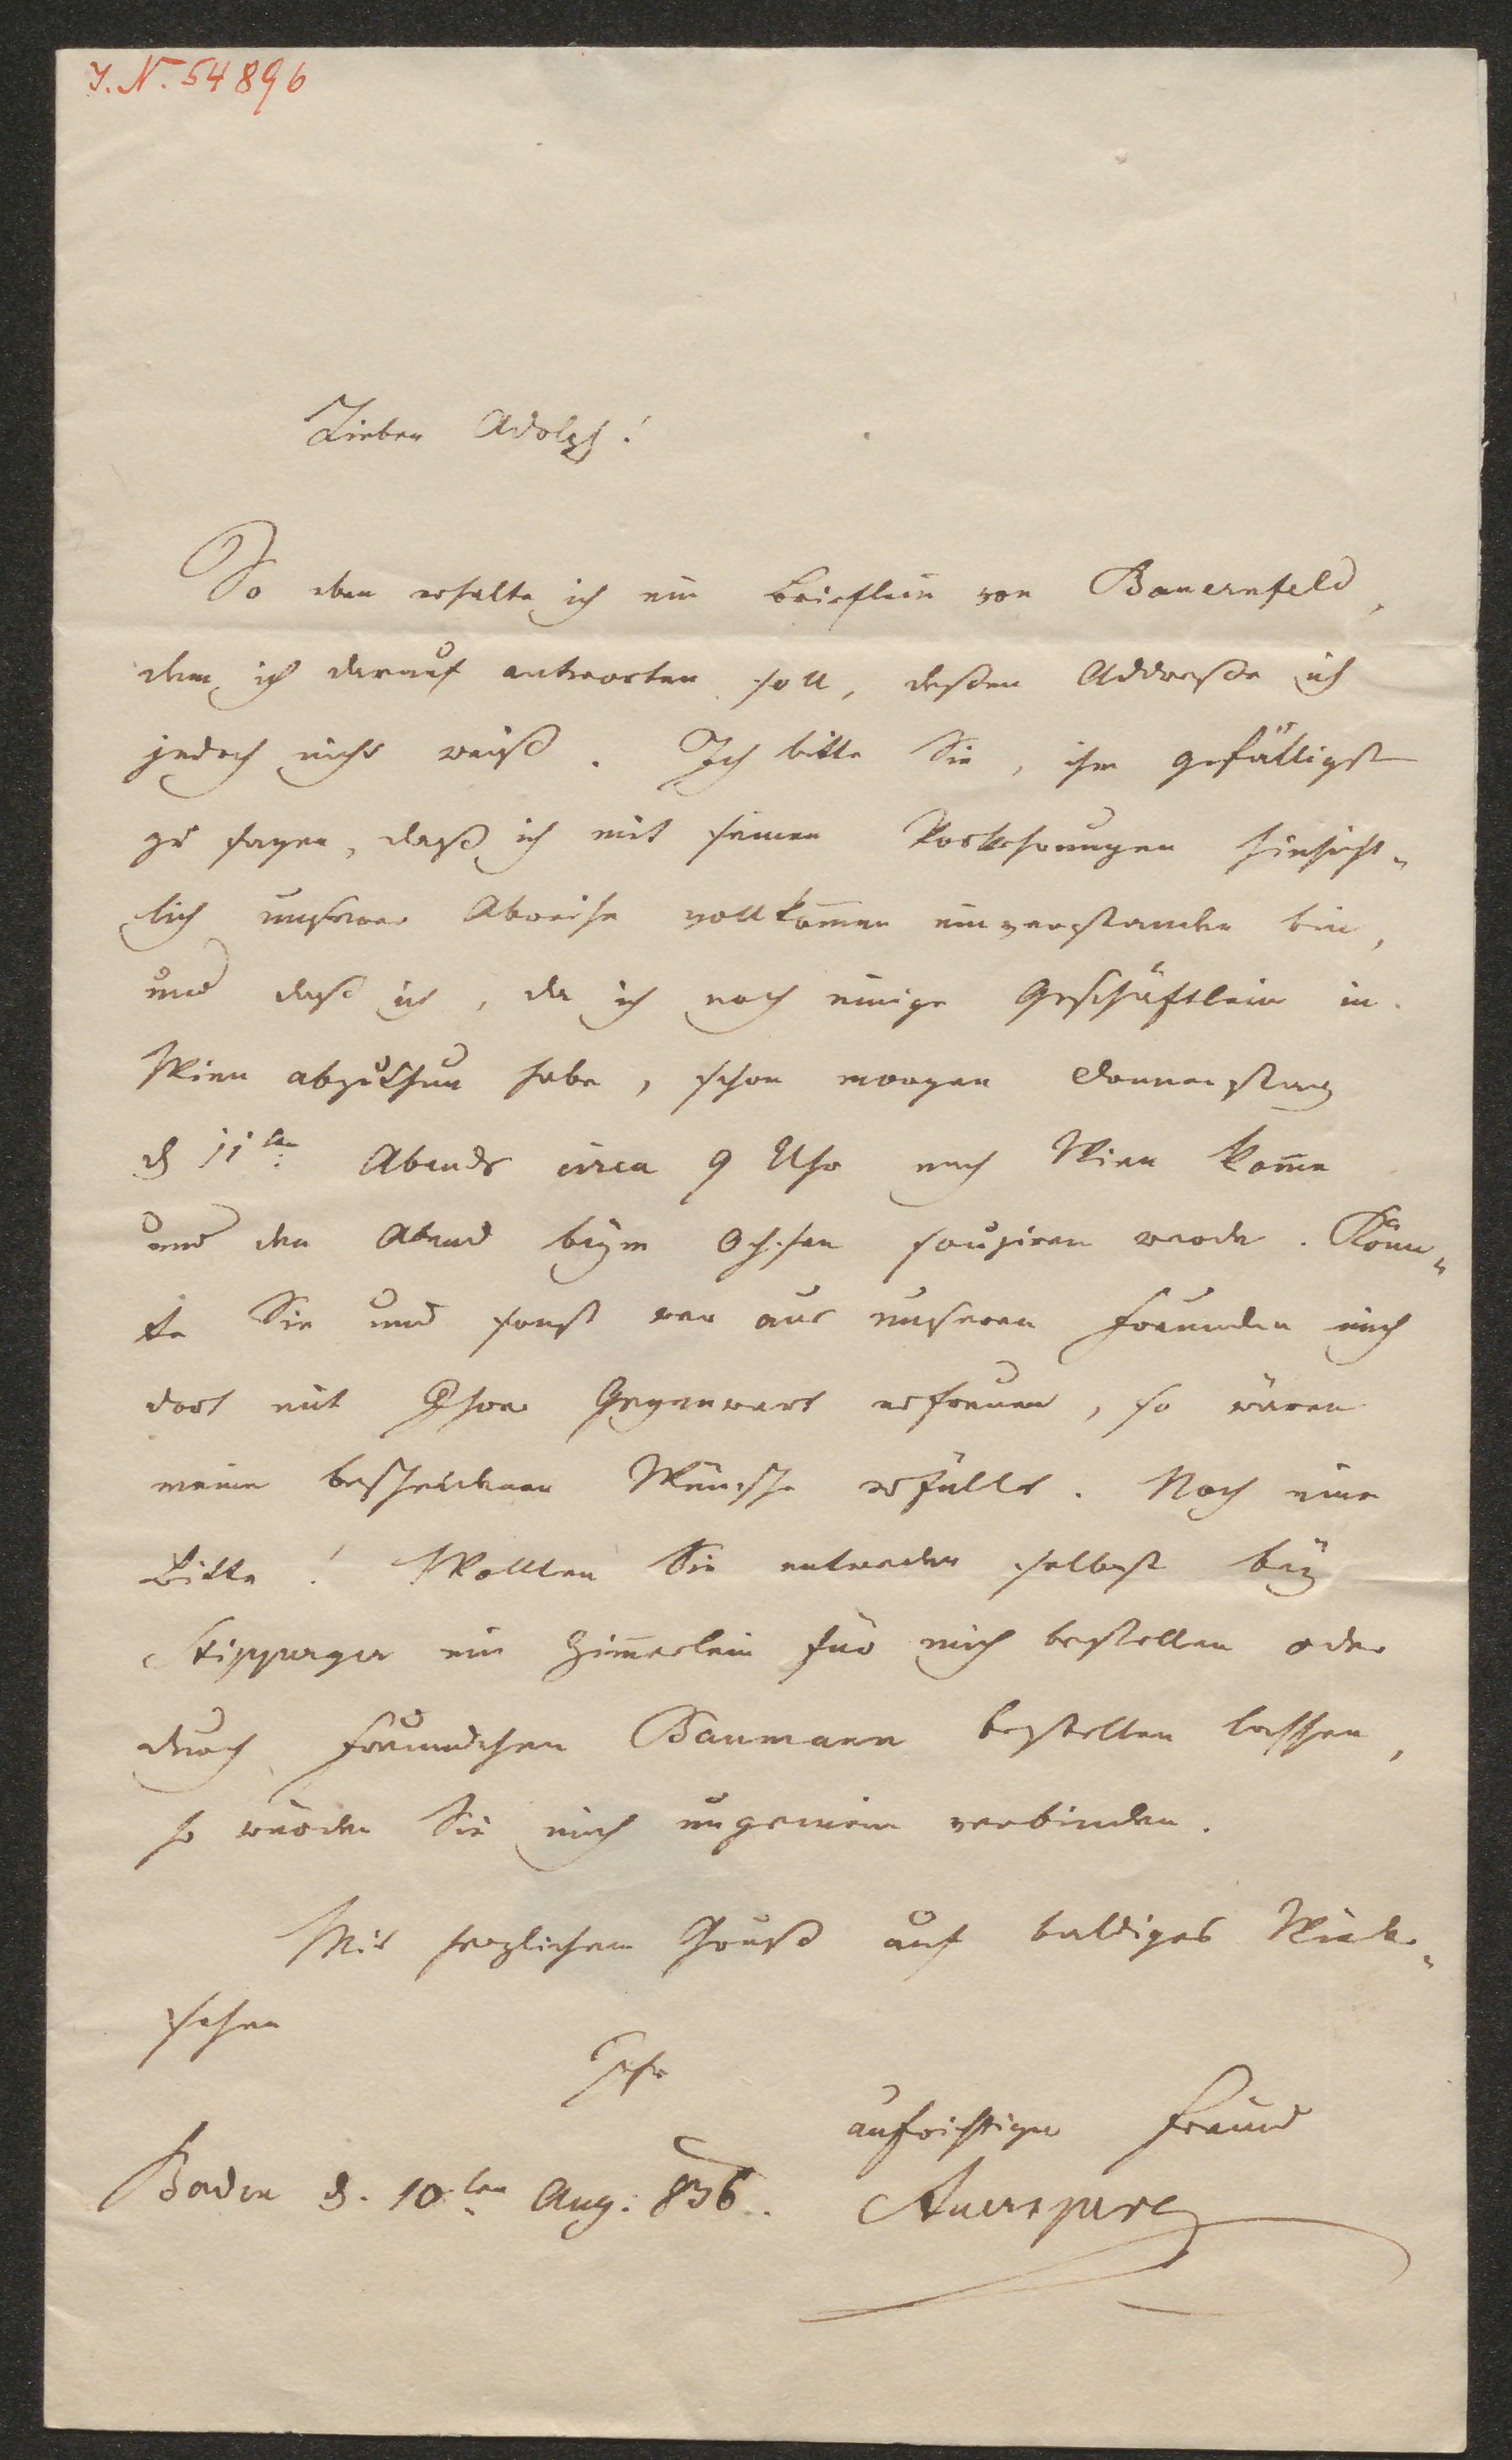 I.N. 54896
Lieber Adolph!
So eben erhalte ich ein Brieflein von Bauernfeld,
dem ich darauf antworten soll, deßen Addreße ich
jedoch nicht weiß. Ich bitte Sie, ihm gefälligst
zu sagen, daß ich mit seinen Vorkehrungen hinsicht„
lich unserer Abreise vollkom̅en einverstanden bin,
und daß ich, da ich noch einige Geschäftlein in
Wien abzuthun habe, schon morgen Donnerstag
d 11ten Abends circa 9 Uhr nach Wien kom̅e
und den Abend beym Ochsen soupiren werde. Könn„
te Sie und sonst wer aus unseren Freunden mich
dort mit Ihrer Gegenwart erfreuen, so wären
meine bescheidenen Wünsche erfüllt. Noch eine
Bitte! Wollten Sie entweder selbst bey
Stipperger ein Zim̅erlein für mich bestellen oder
durch Freundchen Baumann bestellen lassen,
so würden Sie mich ungemein verbinden.
Mit herzlichem Gruß auf baldiges Wieder„
sehen
Ihr
aufrichtiger Freund
Baden d. 10ten Aug. 836. Auersperg